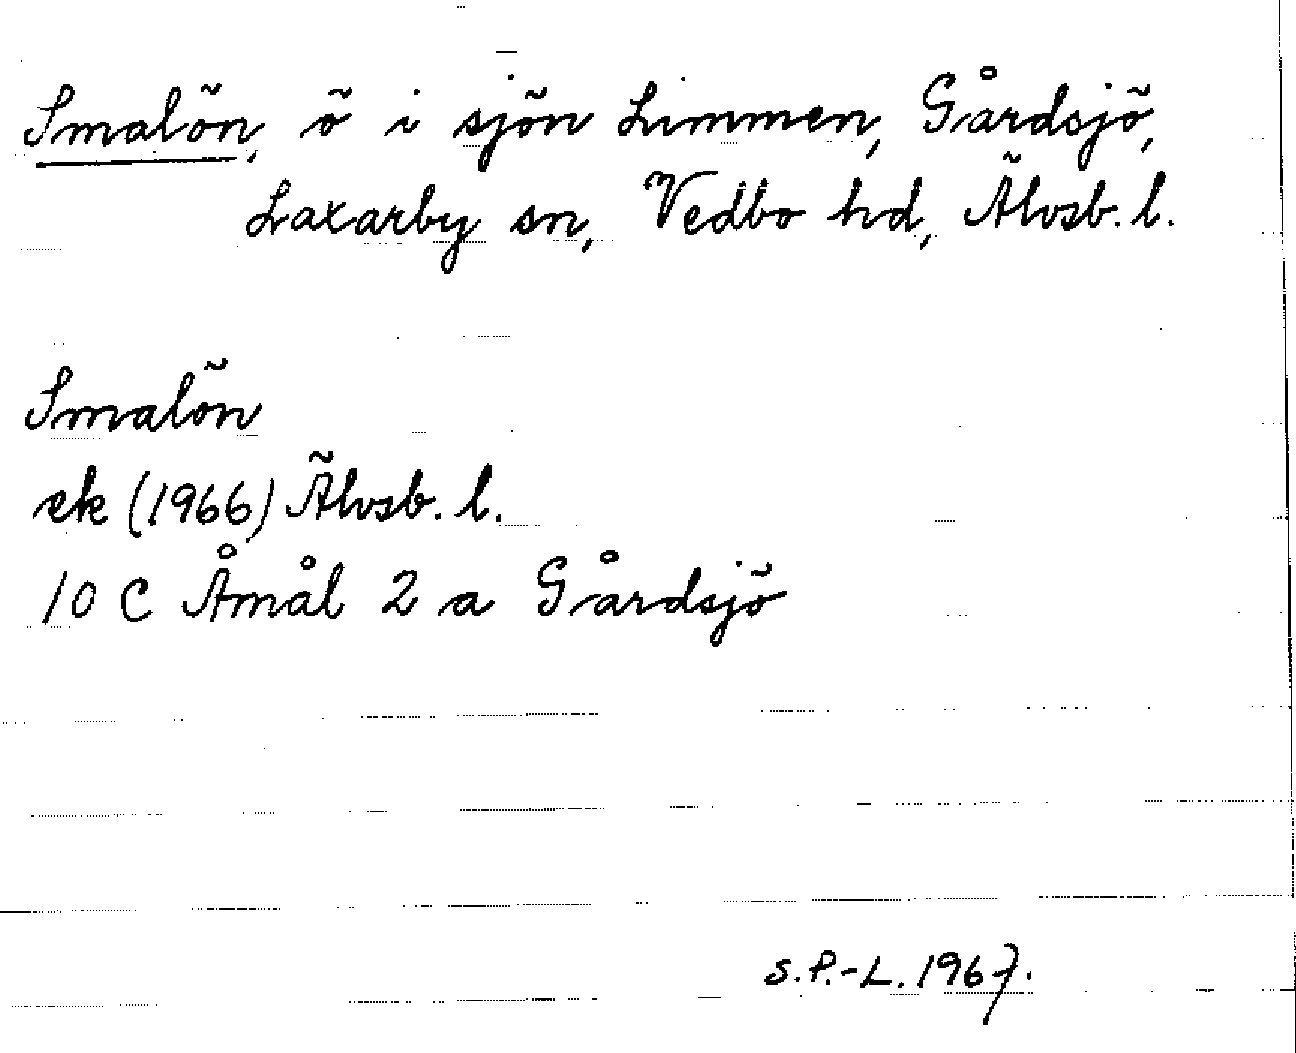 Smalön, ö i sjön Limmen, Gårdsjö,
Laxarby sn, Vedbo hd, Älvsb. l.
Smalön
ek (1966) Älvsb. l.
10 C Åmål 2 a Gårdsjö
S.P.-L. 1967.